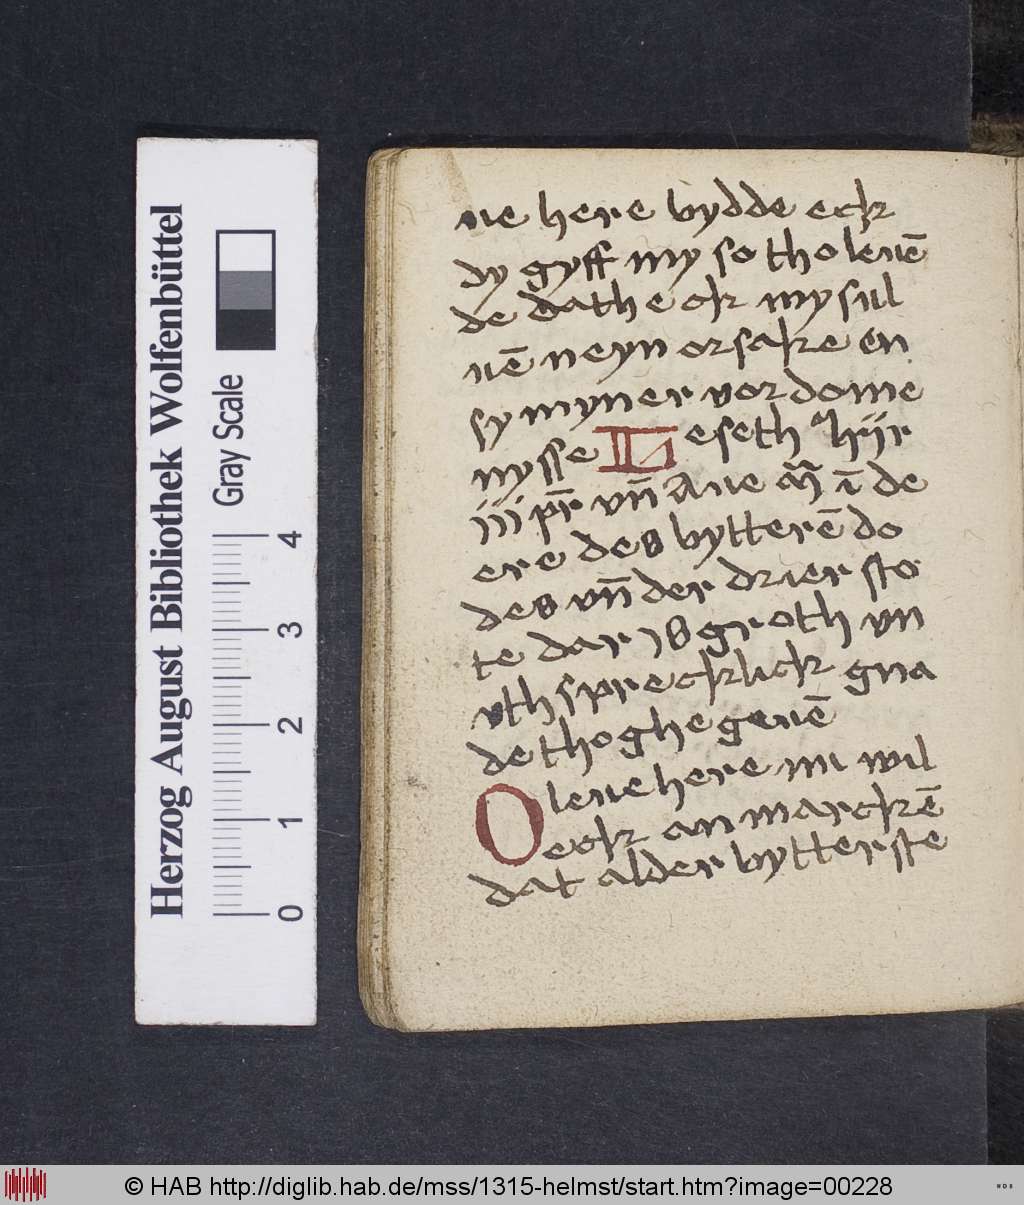 ue here bydde eck
dy gyff my so tho leuē
de dath eck my sul
uē neyn orsake en
sy myner vordome
nysse Leseth hiir
iii pr̄ vn̄ Aue mā ī de
ere des bytterē do
des vn̄ der drier sto
te dar groth vn
vthsprecklick gna
de tho ghe geuē
O leue here nu wil
eck an marckē
dat alder bytterste
Herzog August Bibliothek Wolfenbüttel
Gray Scale
0 1 2 3 4
© HAB http://diglib.hab.de/mss/1315-helmst/start.htm?image=00228